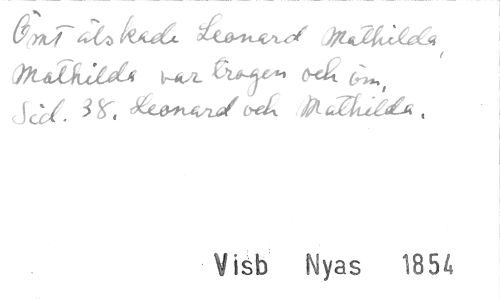 Ömt älskade Leonard Mathilda,
Mathilda var trogen och öm.
Sid. 38. Leonard och Mathilda.
Visb Nyas 1854